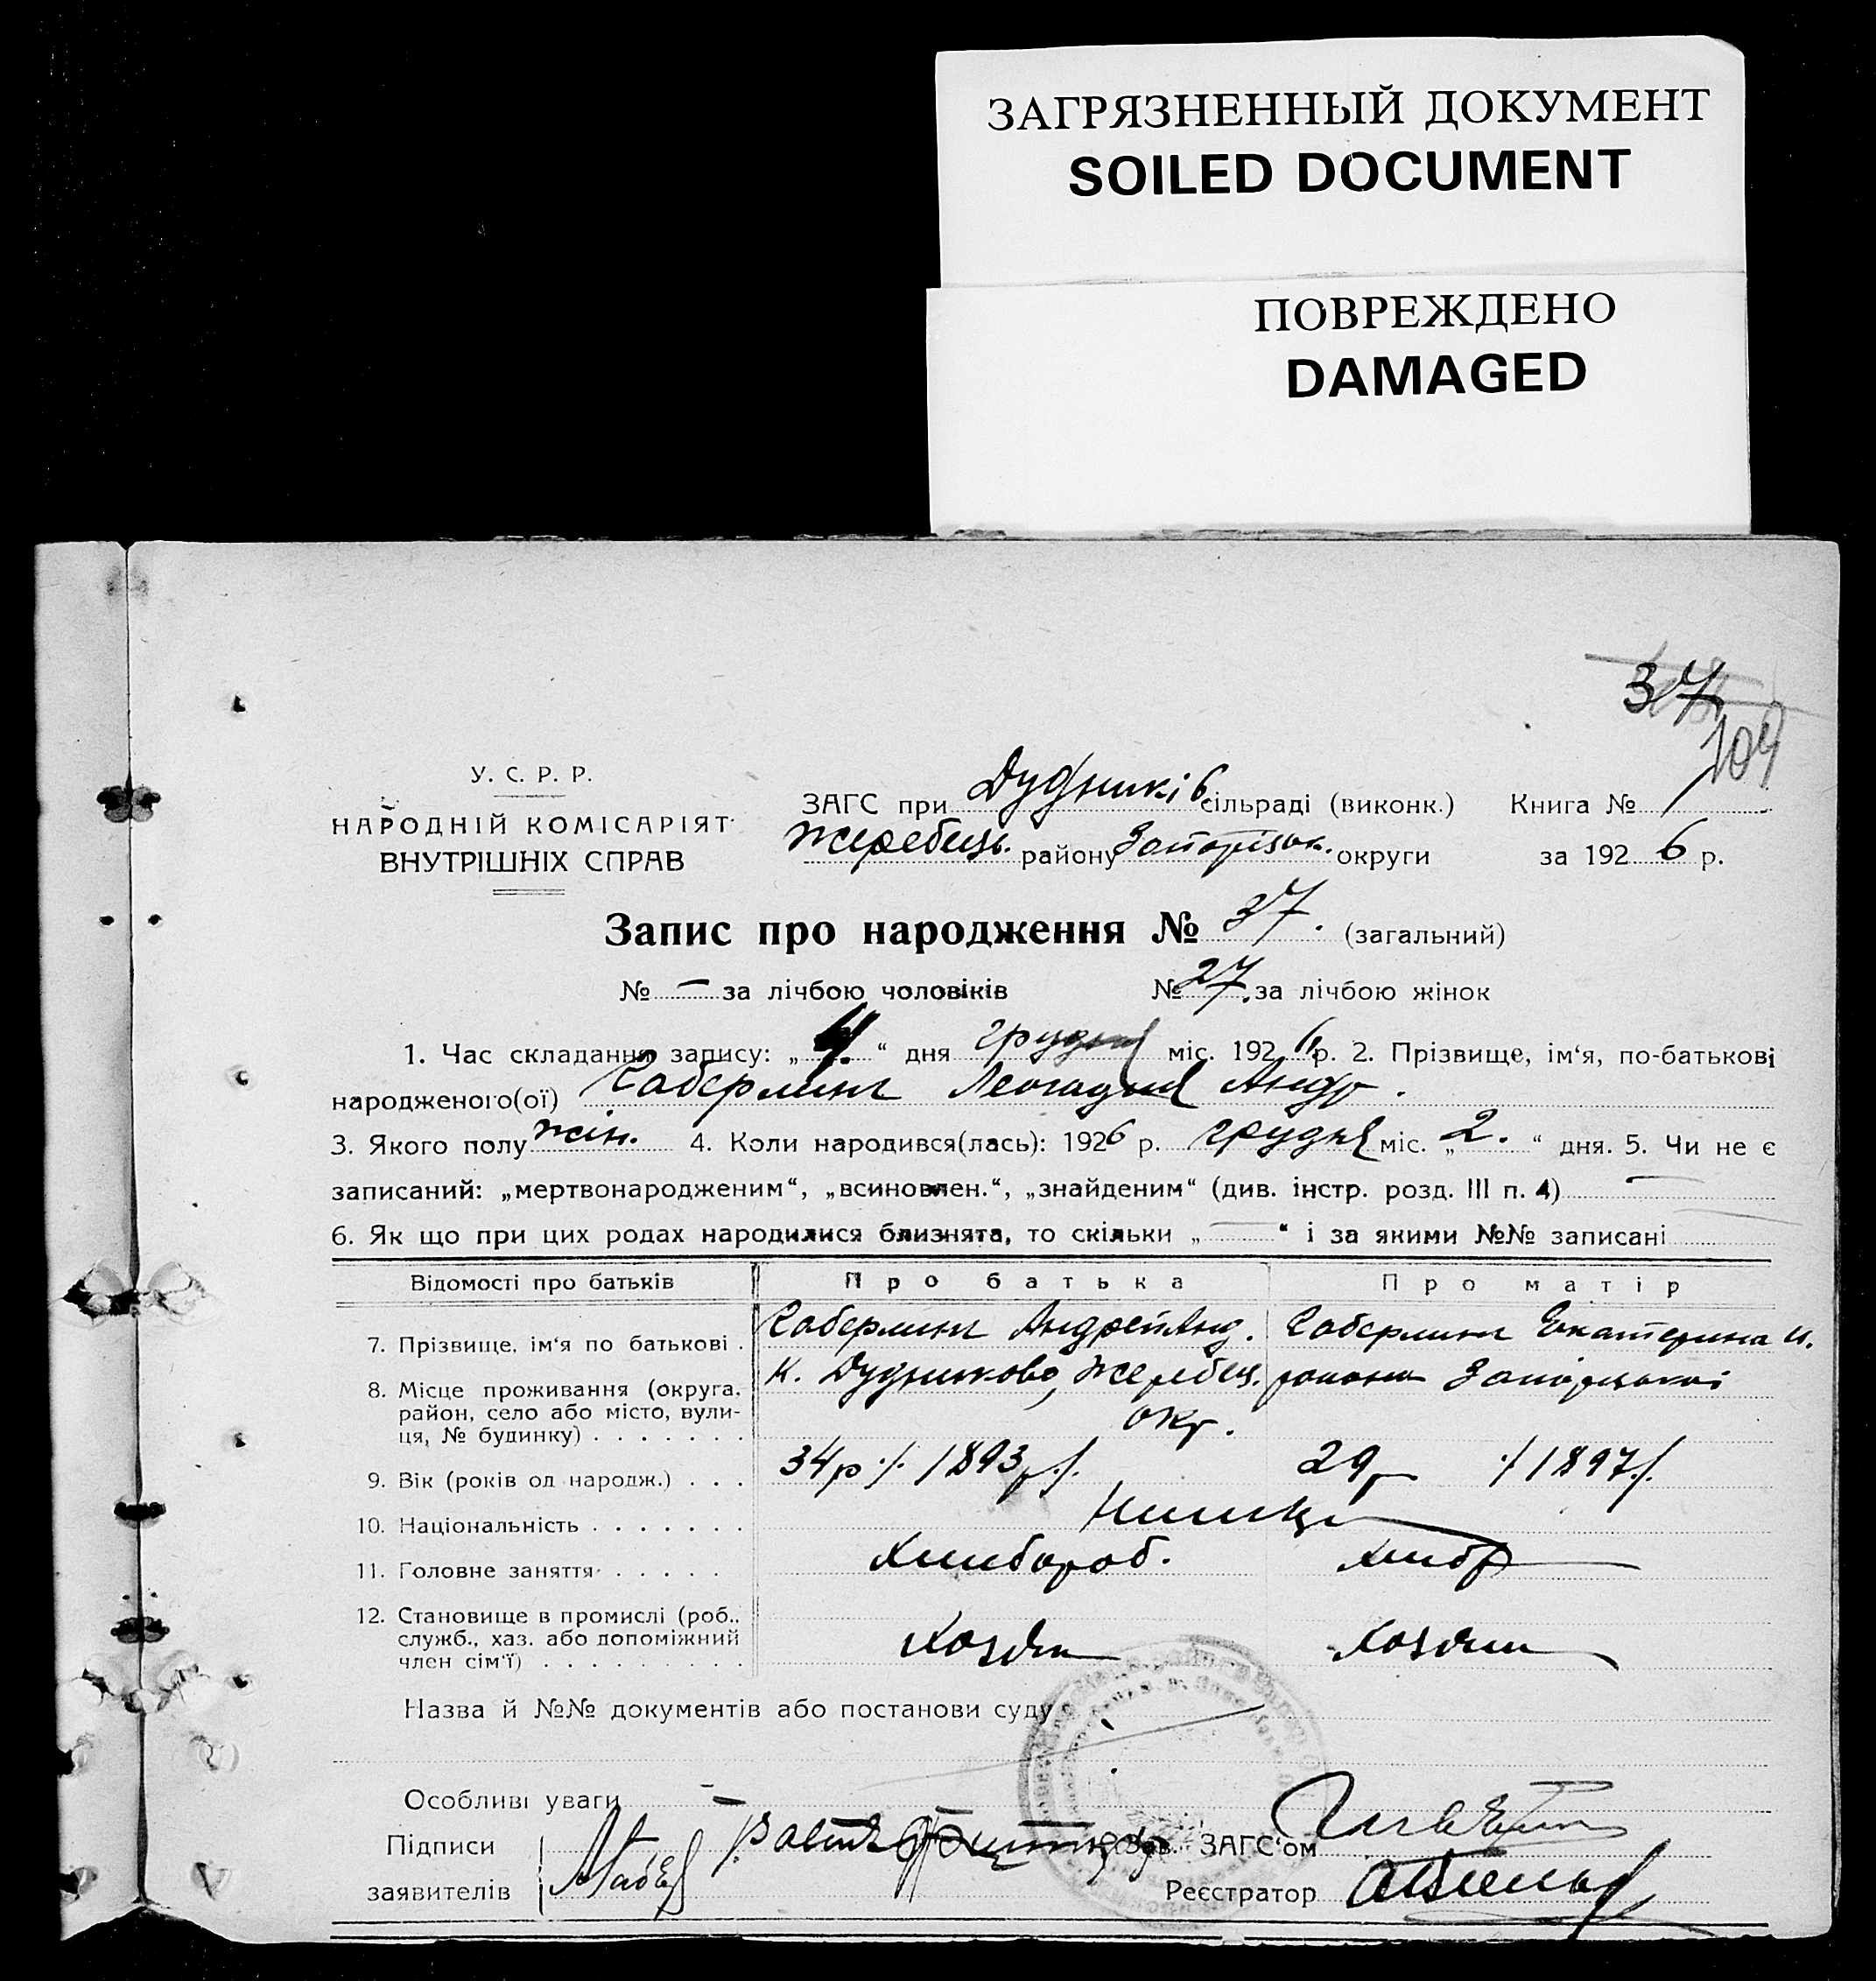 ЗАГРЯЗНЕННЫЙ ДОКУМЕНТ
SOILED DOCUMENT
ПОВРЕЖДЕНО
DAMAGED
37
104
У. С. Р. Р.
НАРОДНІЙ КОМІСАРІЯТ
ВНУТРІШНІХ СПРАВ
ЗАГС при Дудників сільраді (виконк.) Книга №
Жеребець. району Запорізьк. округи за 1926 р.
Запис про народження № 37. (загальний)
№ – за лічбою чоловіків № 27. за лічбою жінок
1. Час складання запису: „4.“ дня грудня міс. 1926 р. 2. Прізвище, ім‘я, по-батькові
народженого(ої) Габерлинг Леокадия Андр.
3. Якого полу жін. 4. Коли народився(лась): 1926 р. грудня міс. „2.“ дня. 5. Чи не є
записаний: „мертвонародженим“, „всиновлен.“, „знайденим“ (див. інстр. розд. III п. 4) —
6. Як що при цих родах народилися близнята, то скільки „—“ і за якими №№ записані
Відомості про батьків Про батька Про матір
7. Прізвище, ім‘я по батькові . Габерлинг Андрей Анд. Габерлинг Екатерина И.
8. Місце проживання (округа, район, село або місто, вулиця, № будинку) . . . . . . . к. Дудниково, Жеребец. района Запоріцької
окр.
9. Вік (років од народж.) . . . 34 р. /. 1893 р. /. 29 р /. 1897 /.
10. Національність . . . . . . . Нимци
11. Головне заняття . . . . . Хлибороб. Хлибр
12. Становище в промислі (роб., служб., хаз. або допоміжний член сім‘ї) . . . . . . . . . Хозяин
Назва й №№ документів або постанови суду
Особливі уваги –
Підписи
заявителів
Зав. ЗАГС‘ом
Реєстратор